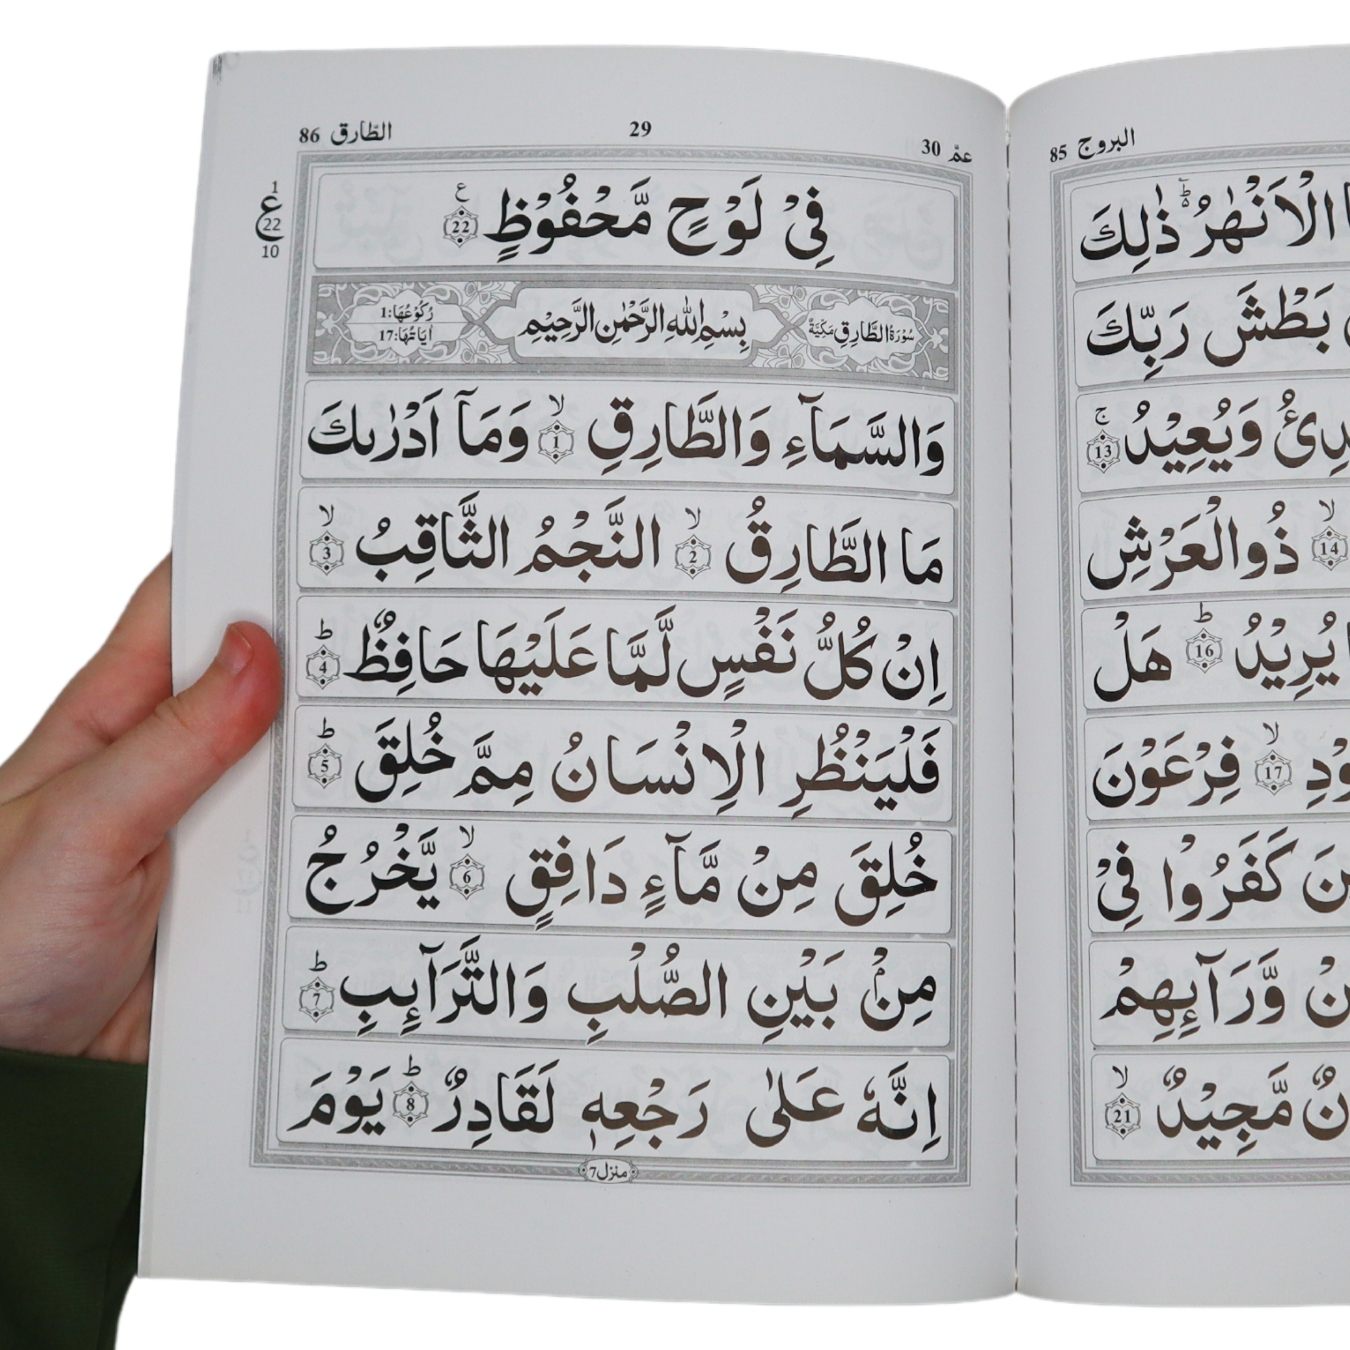 الطّارق 86
29
عمّ 30
1
ع
22
10
فِیْ لَوْحٍ مَّحْفُوْظٍ 22 ع
سُوْرَةُ الطَّارِقِ مَكِّيَّةٌ
بِسْمِ اللّٰهِ الرَّحْمٰنِ الرَّحِيْمِ
رُكُوْعُهَا:1
اٰيَاتُهَا:17
وَالسَّمَآءِ وَالطَّارِقِ 1 لا وَمَآ اَدْرٰىكَ
مَا الطَّارِقُ 2 لا النَّجْمُ الثَّاقِبُ 3 لا
اِنْ كُلُّ نَفْسٍ لَّمَّا عَلَيْهَا حَافِظٌ 4 ط
فَلْيَنْظُرِ الْاِنْسَانُ مِمَّ خُلِقَ 5 ط
خُلِقَ مِنْ مَّآءٍ دَافِقٍ 6 لا يَّخْرُجُ
مِنْۢ بَيْنِ الصُّلْبِ وَالتَّرَآئِبِ 7 ط
اِنَّهٗ عَلٰی رَجْعِهٖ لَقَادِرٌ 8 ط يَوْمَ
منزل 7
البروج 85
الْاَنْهٰرُ ؕ ذٰلِكَ
بَطْشَ رَبِّكَ
وَيُعِيْدُ 13 ج
14 لا ذُوالْعَرْشِ
يُرِيْدُ 16 ط هَلْ
17 لا فِرْعَوْنَ
كَفَرُوْا فِیْ
وَّرَآئِهِمْ
مَّجِيْدٌ 21 لا